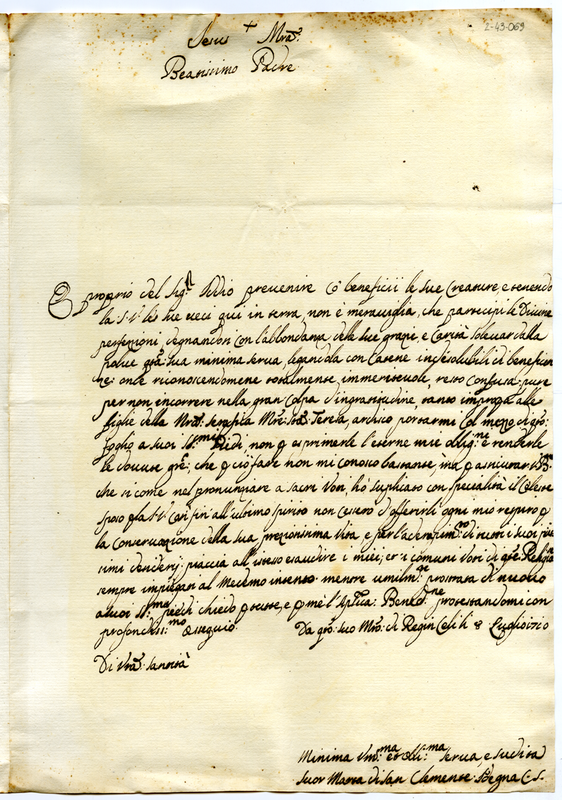 2-43-069
Jesus + Mra:
Beatissimo Padre
È proprio del Sig:r Iddio prevenire co' beneficii le sue Creature, e tenendo
la S.V. le sue vece qui in terra, non è meraviglia, che partecipi le Divine
perfezioni, degnandosi con l'abbondanza delle sue grazie, e carità solevar dalla
polve q:ta sua minima serva, legandola con Catene indissolubili di beneficen
ze: onde riconoscendomene totalmente immeritevole, resto confusa: pure
per non incorrere nella gran colpa d'ingratitudine, tanto impropria alle
figlie della Nra: serafica Mre: Sta: Teresa, ardisco portarmi col mezzo di q:to
foglio a suoi SS:mi Piedi non p esprimerle l'eterne mie oblig:ne e renderle
le dovute gre:, che p ciò fare non mi conosco bastante, ma p assicurar V.B.
che si come nel pronunziare i sacri Voti, hò suplicato con specialità il Celeste
sposo p la S.V. così fin' all'ultimo spirito non cesserò d'offerirli ogni mio respiro p
la Conservazione della sua preziosissima Vita, e per l'adempim:to di tutti i suoi
simi desiderj; piaccia all'istesso esaudire i miei, et i comuni Voti di q:te Religiose
sempre impiegati al Medemo intento mentre umilm:te prostrata di nuovo
a suoi SS:mi piedi chiedo p queste, e p mè l'Apt:ca: Bened:ne protestandomi con
profondiss:mo ossequio Da q:to suo Mro: di Regina Celi li 8 Luglio
Di Vra: Santità
Minima Um:ma et obli:ma serva, e sudita
Suor Maria di San Clemente C.S.